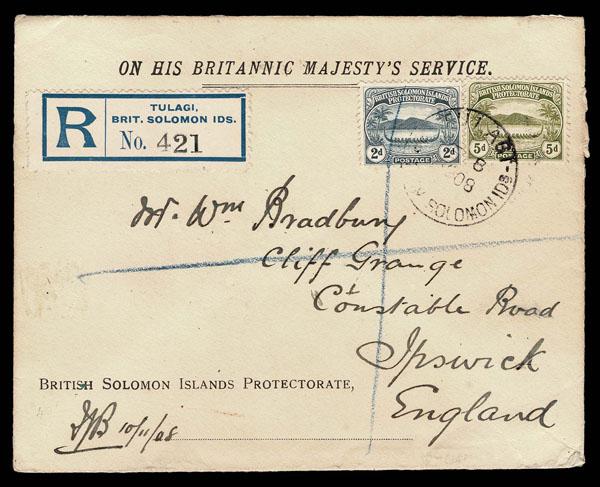 ON HIS BRITANNIC MAJESTY'S SERVICE.
R
TULAGI,
BRIT. SOLOMON IDS.
No. 421
BRITISH SOLOMON ISLANDS
PROTECTORATE
2d 2d
POSTAGE
BRITISH SOLOMON ISLANDS
PROTECTORATE
5d 5d
POSTAGE
SOLOMON IDS
Mr. Wm Bradbury
Cliff Grange
Constable Road
Ipswick
England
BRITISH SOLOMON ISLANDS PROTECTORATE,
10/11/08